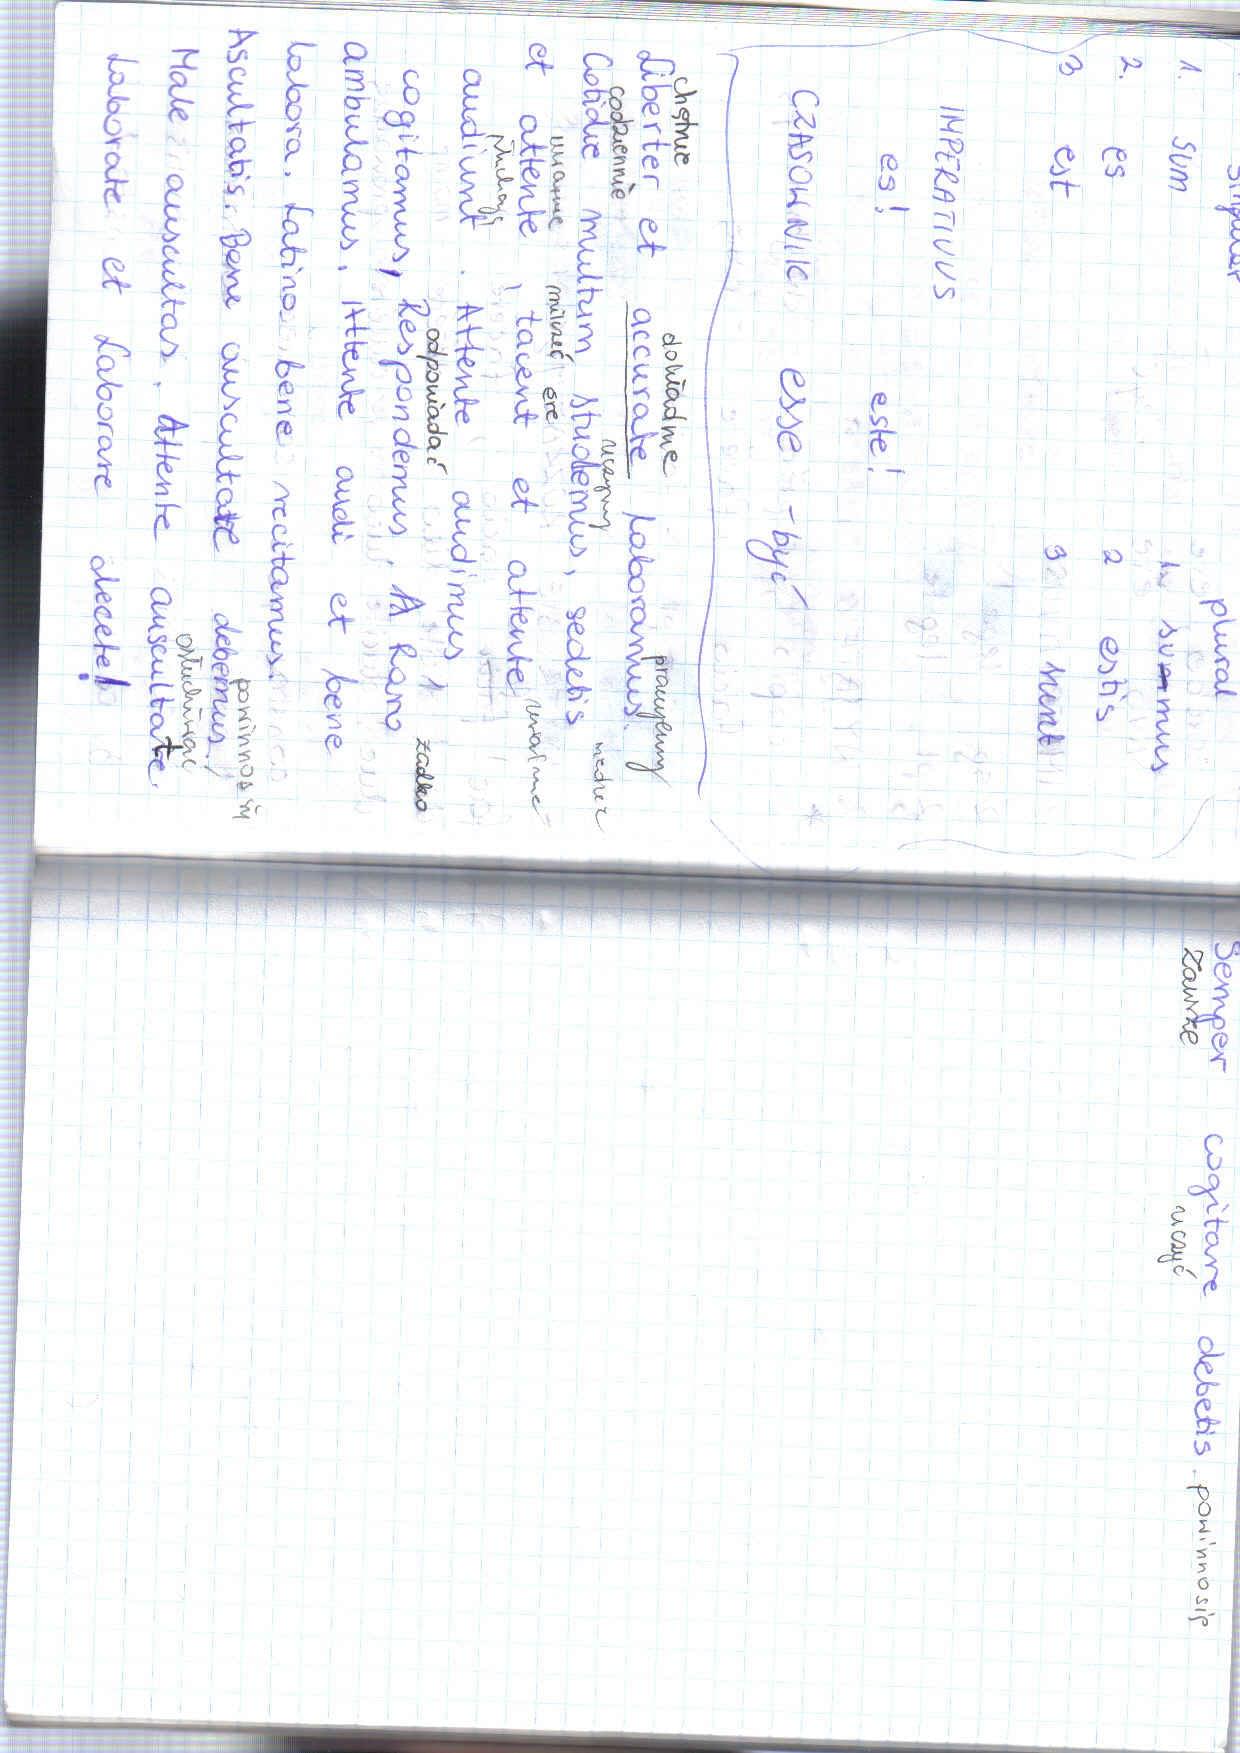 singular plural
1. sum 1. sumus
2. es 2 estis
3 est 3 sunt
IMPERATIVUS
es! este!
CZASOWNIK esse - być
chętnie dokładnie pracujemy
Liberter et accurate laboramus.
codziennie uczymy
Cotidie multum studemus, sedetis
uważnie milczeć ere uważnie
et attente, tacent et attente
słuchają
audiunt. Attente audimus
odpowiadać żadko
cogitamus, Respondemus. A Raro
ambulamus. Attente audi et bene
labora. Latino bene recitamus.
powinno się
Ascultatis. Bene auscultate debemus!
osłuchiwać
Male auscultas. Attente auscultate.
Laborate et Laborare decete!
Semper cogitare debetis. powinno się
Zawsze uczyć